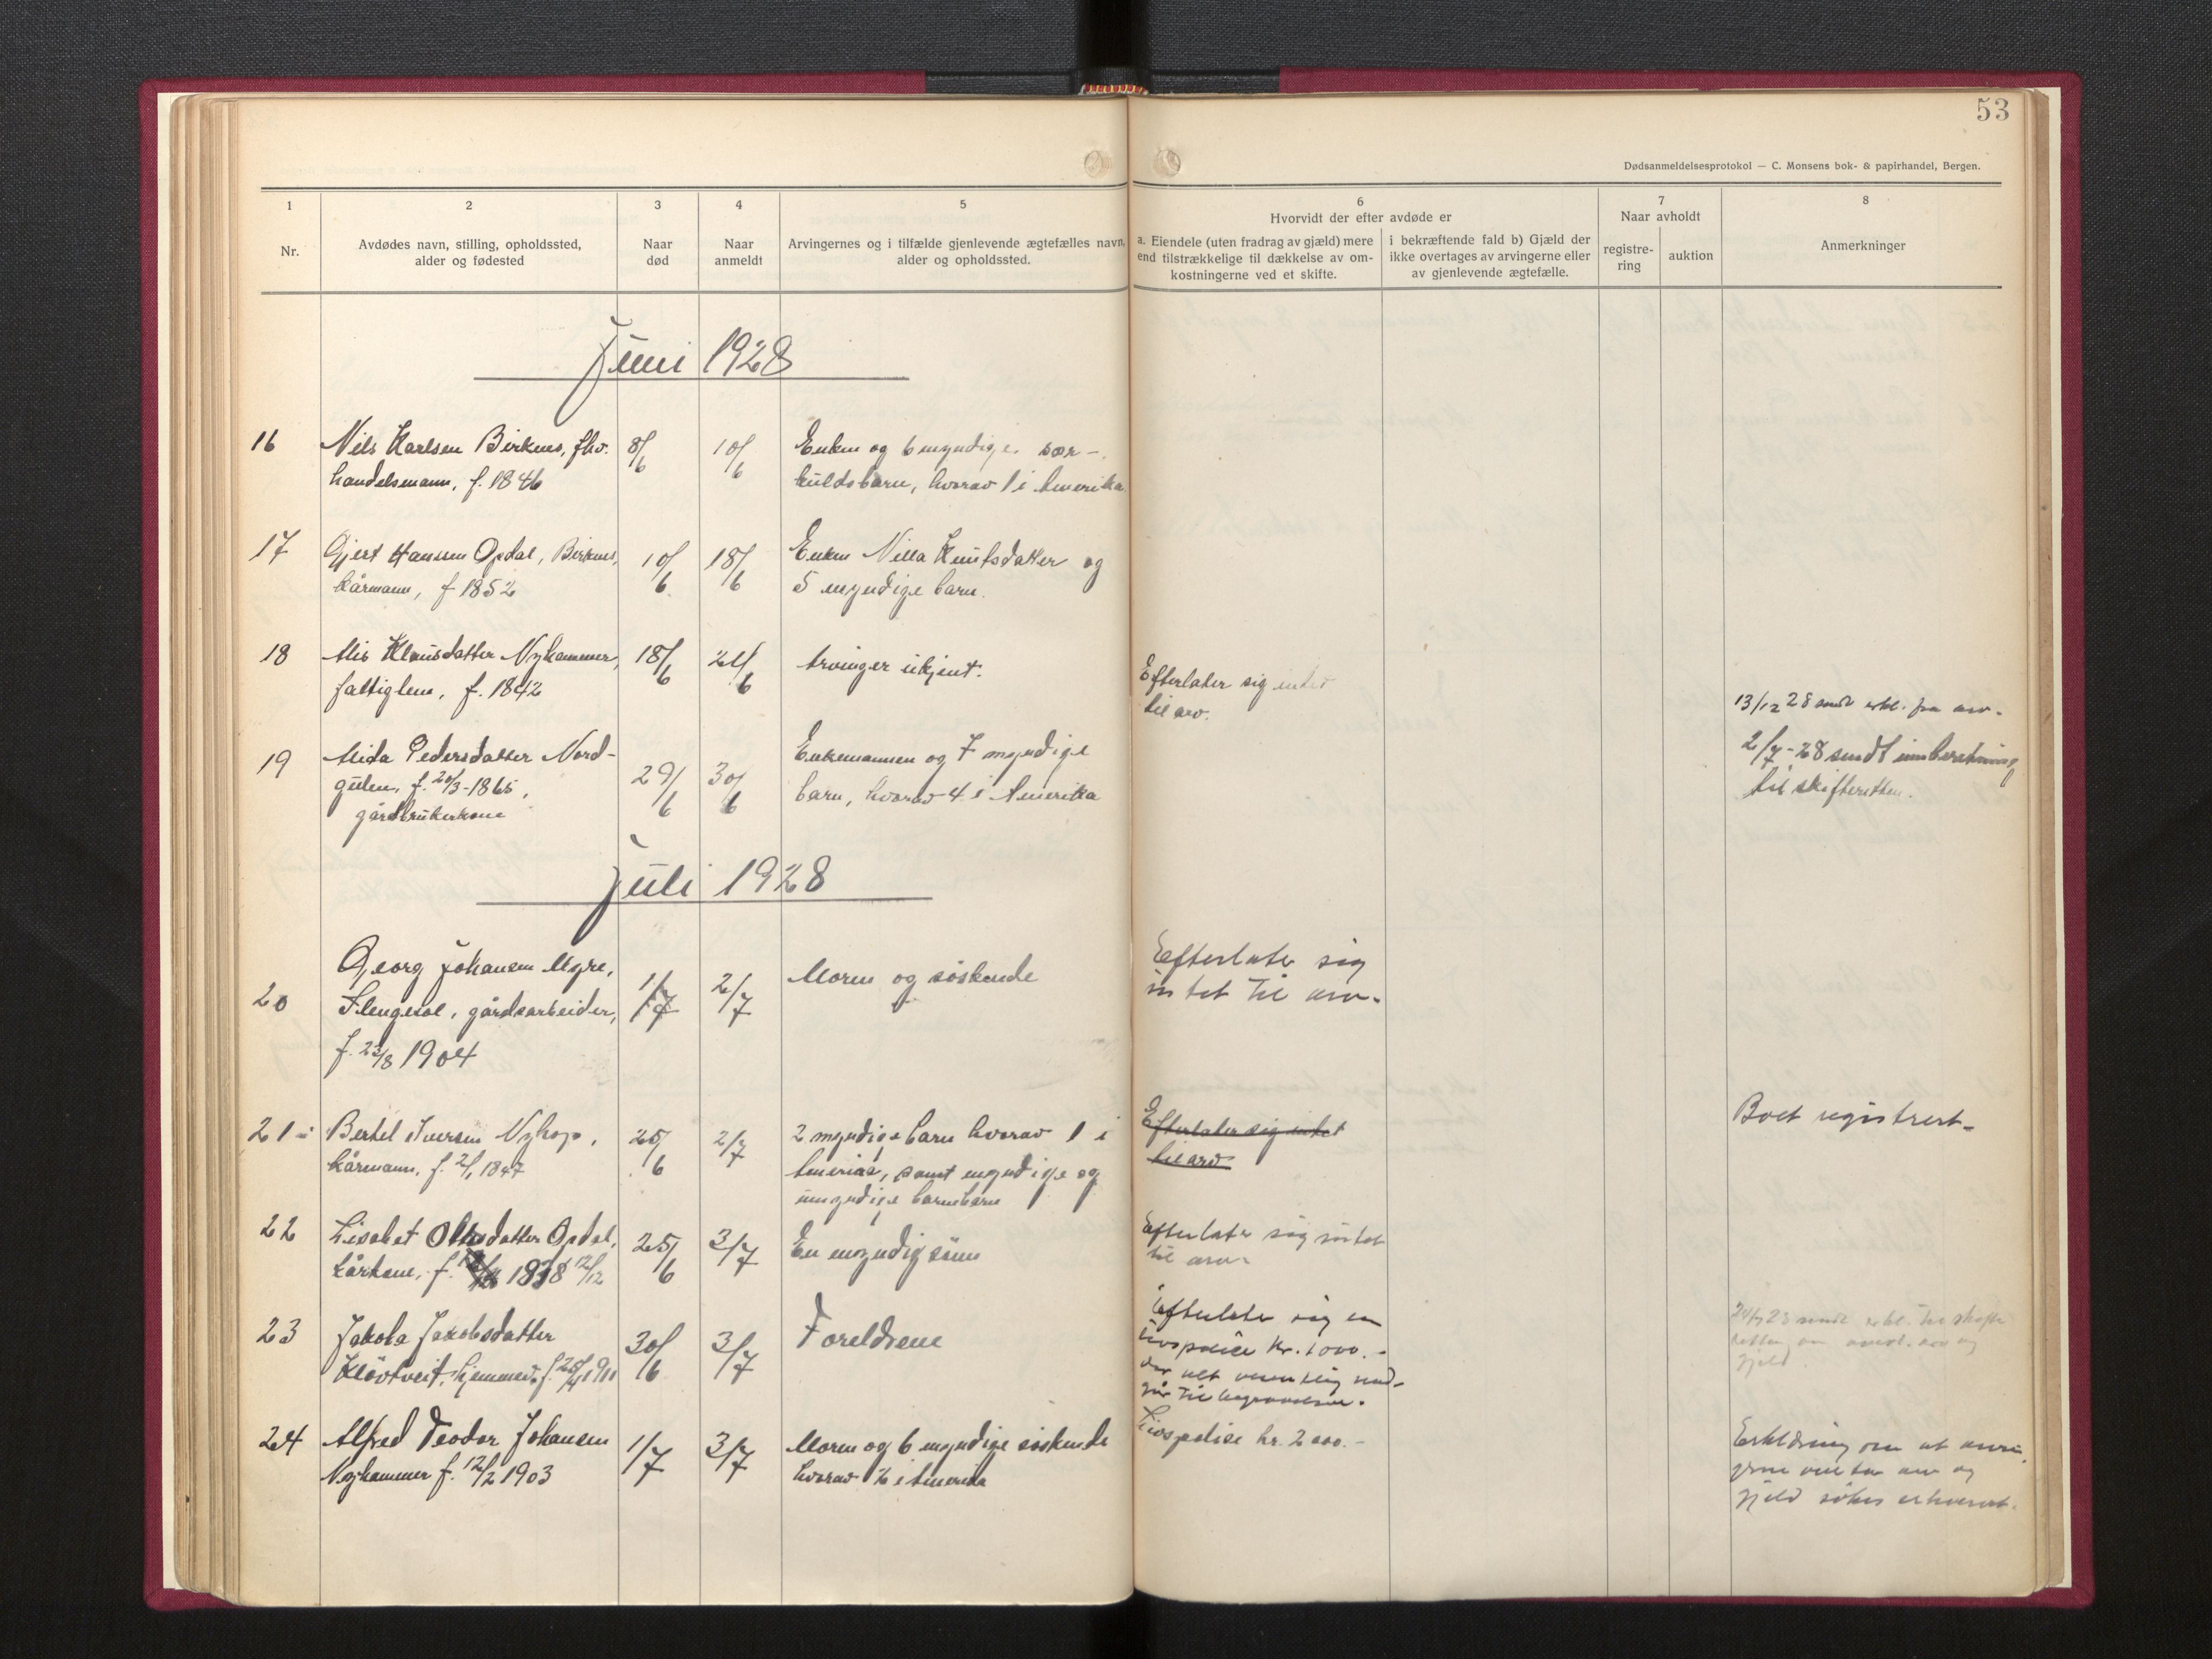 53
Dødsanmeldelsesprotokol — C. Monsens bok- & papirhandel, Bergen.
1 2 3 4 5 6 7 8
Nr.
Avdødes navn, stilling, opholdssted,
alder og fødested
Naar
død
Naar
anmeldt
Arvingernes og i tilfælde gjenlevende ægtefælles navn,
alder og opholdssted.
Hvorvidt der efter avdøde er
a. Eiendele (uten fradrag av gjæld) mere
end tilstrækkelige til dækkelse av om-
kostningerne ved et skifte.
i bekræftende fald b) Gjæld der
ikke overtages av arvingerne eller
av gjenlevende ægtefælle.
Naar avholdt
registre-
ring
auktion
Anmerkninger
Juni 1928
16 Nils Karlsen Birknes, fhv.
handelsmann, f. 1846
8/6
10/6
Enken og 6 myndige sær-
kuldsbarn, hvorav 1 i Amerika
17 Gjert Hansen Opdal, Birknes,
kårmann, f 1852
10/6
18/6
Enken Nilla Knutsdatter og
5 myndige barn.
18 Alis Klausdatter Nyhammer,
fattiglem, f. 1842
18/6
21/6
Arvinger ukjent.
Efterlater sig intet
til arv.
13/12 28 sendt erkl. fra arv.
19 Alida Pedersdatter Nord-
gulen, f. 20/3-1865,
gårdbrukerkone
29/6
30/6
Enkemannen og 7 myndige
barn, hvorav 4 i Amerika
2/7-28 sendt innberetning
til skifteretten.
Juli 1928
20 Georg Johansen Myre,
gårdsarbeider,
f. 23/8 1904
1/7
2/7
Moren og søskende
Efterlater sig
intet til arv.
21 Bertel Iversen
kårmann, f. 2/1 1847
25/6
2/7
2 myndige barn hvorav 1 i
Amerika, samt myndige og
umyndige barnebarn
Efterlater sig intet
til arv
Boet registrert.
22 Lisabet Olsdatter Opdal,
kårkone, f. 1838 12/12
25/6
3/7
En myndig sønn
Efterlater sig intet
til arv.
23 Jakoba Jakobsdatter
Kløvtveit, hjemmev. f. 1911
30/6
3/7
Foreldrene
Efterlater sig en
livspolise kr. 1000.-
der alt vesentlig med-
går til begravelsen.
sendt erkl. til skifte
retten om arv og
gjeld.
24 Alfred Teodor Johansen
Nyhammer f. 12/2 1903
1/7
3/7
Moren og 6 myndige søskende
hvorav 2 i Amerika
Livspolise kr. 2000.-
Erklæring om at arvin-
gene overtar arv og
gjeld søkes erhvervet.